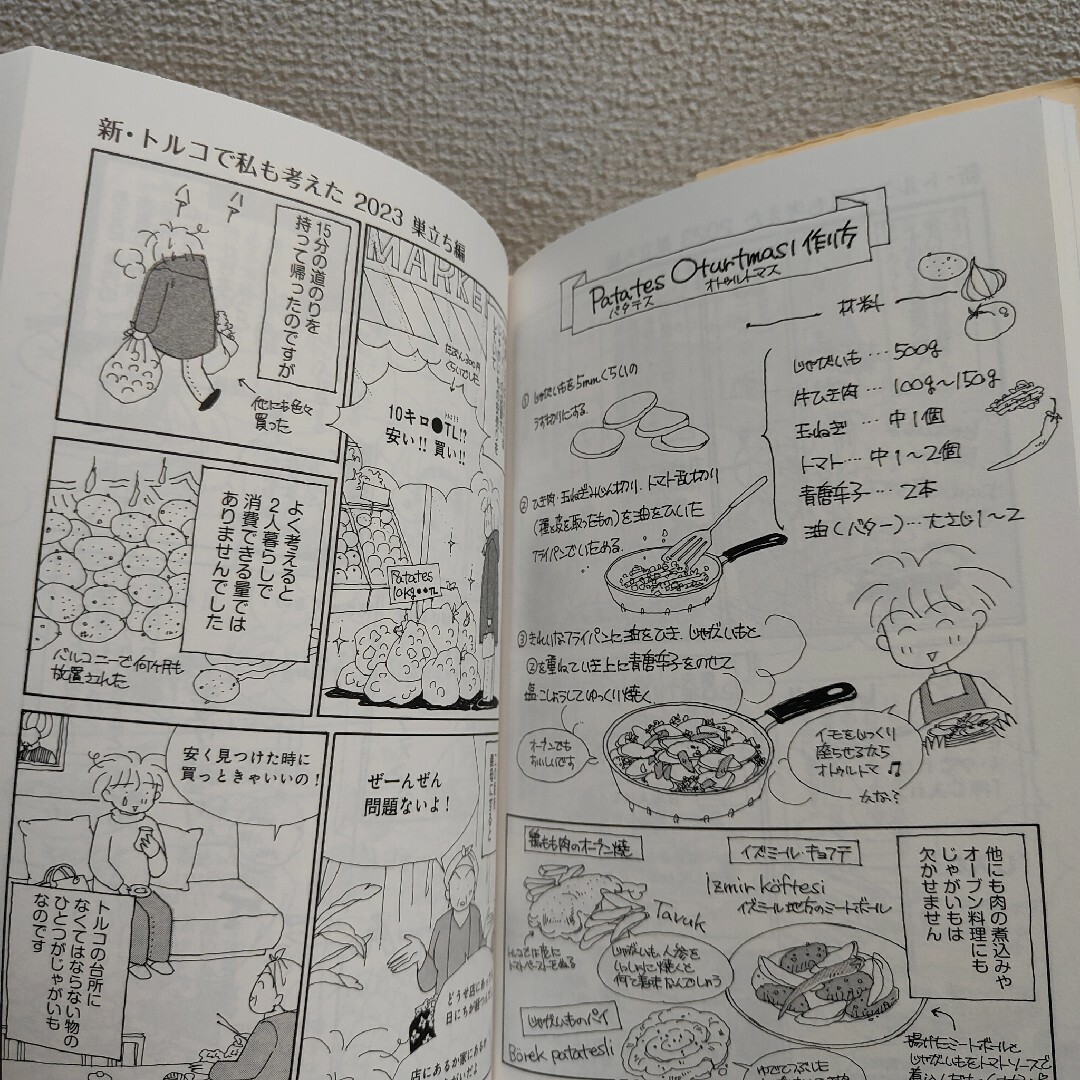 新・トルコで私も考えた 2023 巣立ち編
MARKE
10キロ●TL!?
安い!! 買い!!
Patates
10kg ●●TL
15分の道のりを
持って帰ったのですが
ハア
他にも色々
買った
よく考えると
2人暮らしで
消費できる量では
ありませんでした
バルコニーで何ヶ月も
放置された
ぜーんぜん
問題ないよ!
どうせ店にあっ
店にあるか家にあるか
安く見つけた時に
買っときゃいいの!
トルコの台所に
なくてはならない物の
ひとつがじゃがいも
なのです
Patates Oturtması 作り方
パタテス オトゥルトマス
材料
じゃがいも…500g
片ひき肉…100g~150g
玉ねぎ…中1個
トマト…中1~2個
青唐辛子…2本
油(バター)…大さじ1~2
① じゃがいもを5mmくらいの
うす切りにする.
② ひき肉・玉ねぎみじん切り.トマト乱切り
(種と皮を取ったもの)を油をひいた
フライパンでいためる.
③ きれいなフライパンに油をひき.じゃがいもと
②を重ねていき上に青唐辛子をのせて
塩こしょうしてゆっくり焼く
オーブンでも
おいしいです
イモをじっくり
座らせるなら
オトゥルトマ♫
んな?
他にも肉の煮込みや
オーブン料理にも
じゃがいもは
欠かせません
イズミール・キョフテ
İzmir köftesi
イズミール地方のミートボール
揚げたミートボールと
じゃがいもをトマトソースで
鶏もも肉のオーブン焼
Tavuk
じゃがいも、人参を
いっしょに焼くと
何で美味なんでしょう
じゃがいものパイ
Börek patatesli